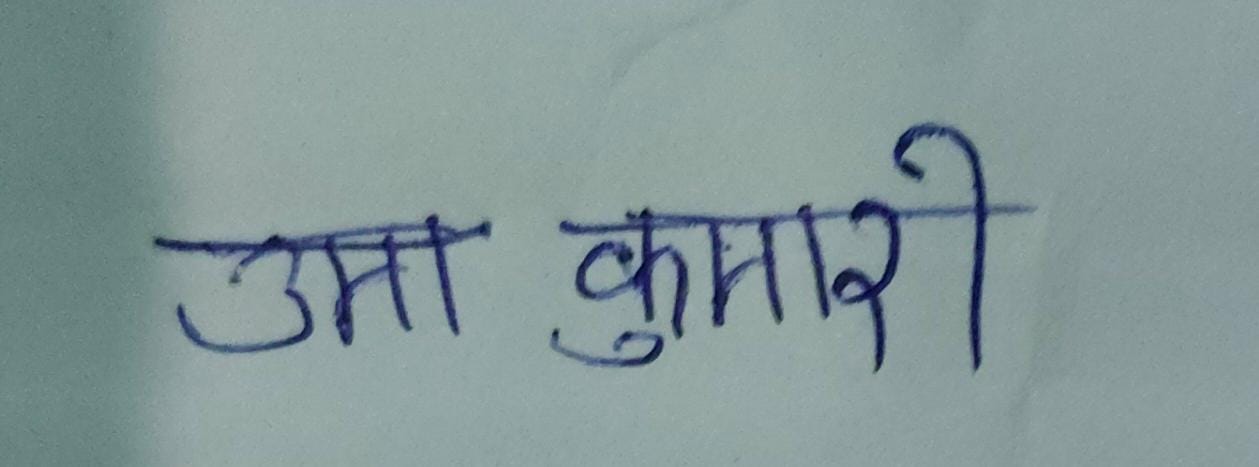 उमा कुमारी